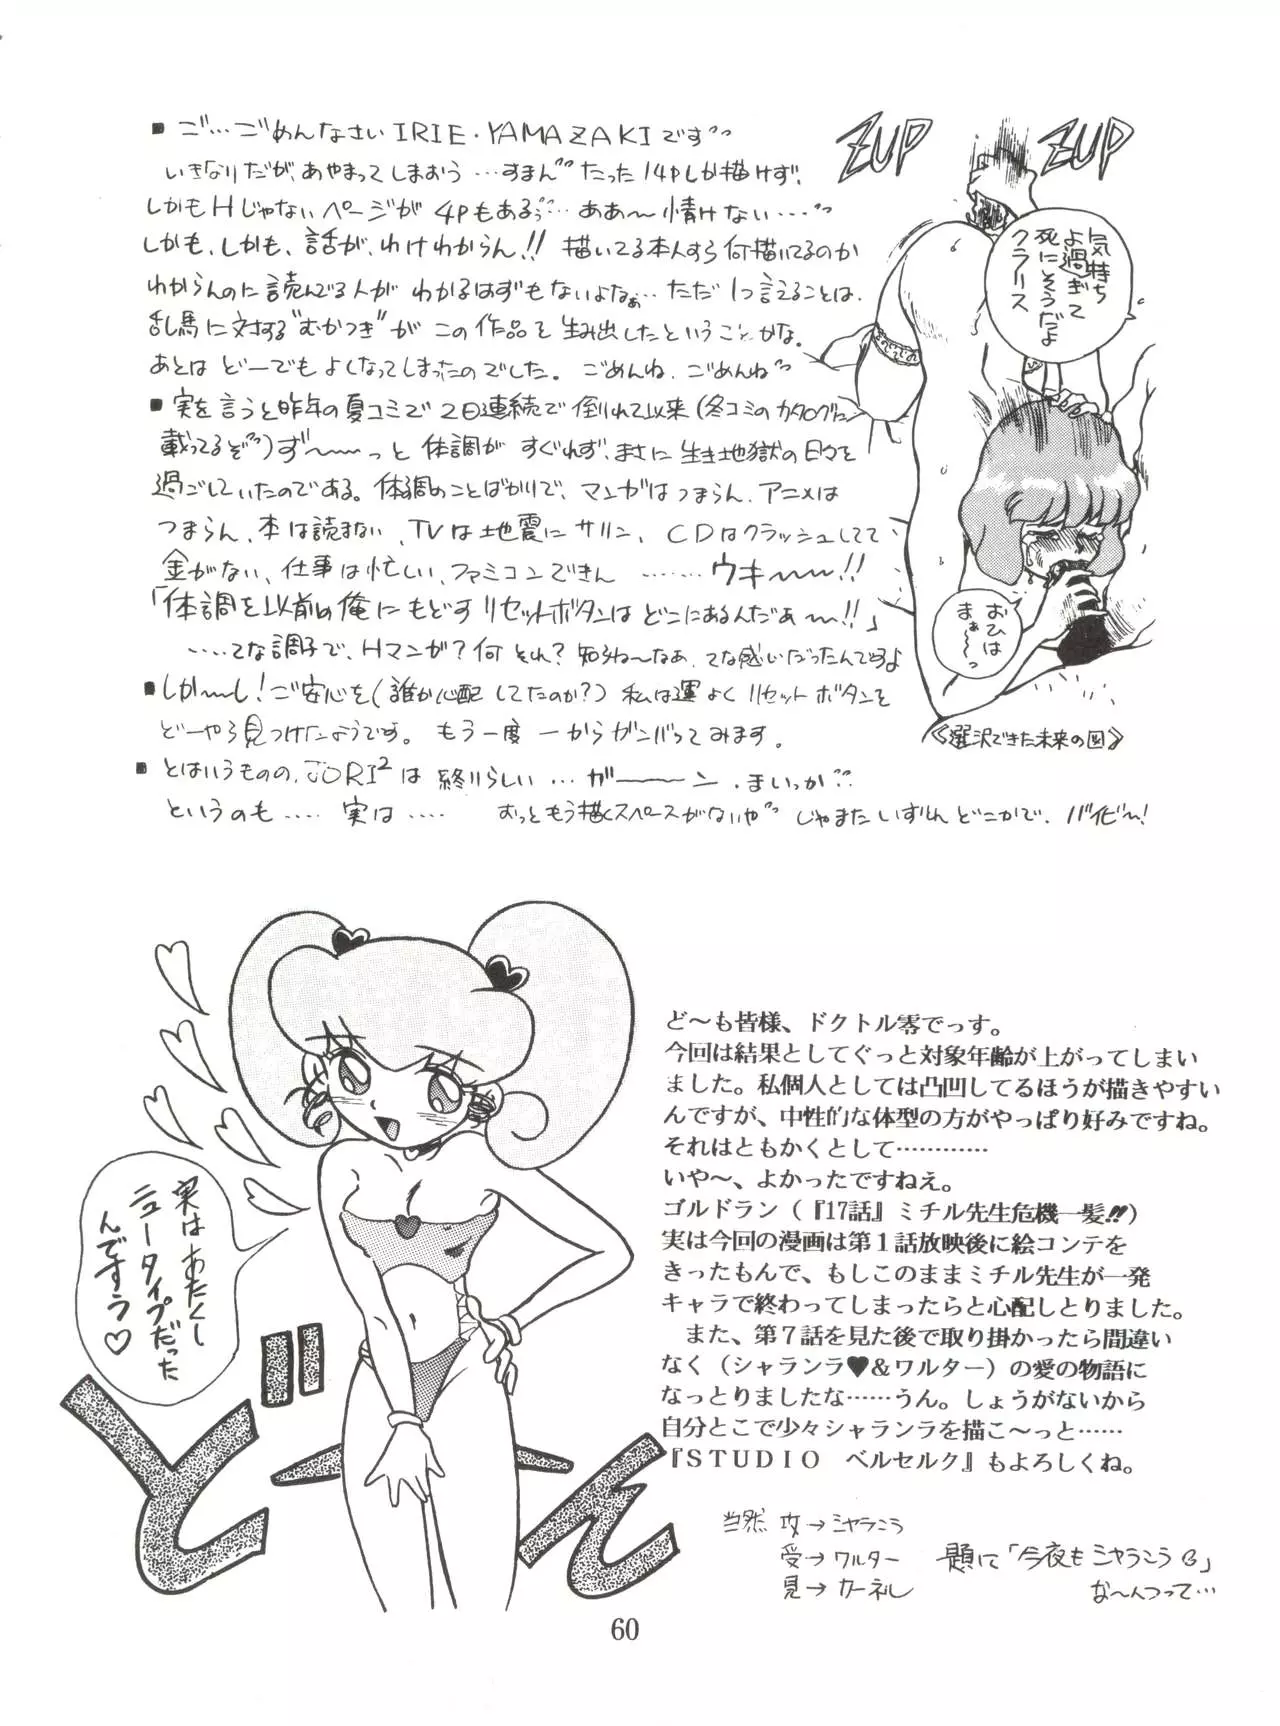 ■ ご…ごめんなさい IRIE・YAMAZAKIです
いきなりだが、あやまってしまおう…すまん たった14Pしか描けず、
しかもHじゃないページが4Pもあるぅ… ああ〜情けない…
しかも、しかも、話が、わけわからん!! 描いてる本人すら何描いてるのか
わからんのに読んでる人がわかるはずもないよなぁ… ただ1つ言えることは、
乱馬に対する"むかつき"がこの作品を生み出したということかな。
あとはどーでもよくなってしまったのでした。ごめんね、ごめんね
■ 実を言うと昨年の夏コミで2日連続で倒れて以来(冬コミのカタログに
載ってるぞ)ず〜〜っと体調がすぐれず、まさに生き地獄の日々を
過ごしていたのである。体調のことばかりで、マンガはつまらん、アニメは
つまらん、本は読まない、TVは地震にサリン、CDはクラッシュしてて
金がない、仕事は忙しい、ファミコンできん……ウキ〜〜!!
「体調を以前の俺にもどすリセットボタンはどこにあるんだぁ〜!!」
……てな調子で、Hマンガ?何それ?知らね〜なぁ、てな感じだったんですよ
■ しか〜し!ご安心を(誰が心配してたのか?)私は運よくリセットボタンを
どーやら見つけたようです。もう一度一からガンバってみます。
■ とはいうものの、JORI²は終りらしい…ガーーン、まいっか
というのも…… 実は…… おっともう描くスペースがないや じゃまたいずれどこかで、バイビ〜!
ZUP
ZUP
気持ち
よ過ぎて
死にそうだよ
クラリス
おひは
まぁ〜っ
《選沢できた未来の図》
実はあたくし
ニュータイプだった
んですぅ♡
ど〜ん
ど〜も皆様、ドクトル零でっす。
今回は結果としてぐっと対象年齢が上がってしまい
ました。私個人としては凸凹してるほうが描きやすい
んですが、中性的な体型の方がやっぱり好みですね。
それはともかくとして…………
いや〜、よかったですねえ。
ゴルドラン(『17話』ミチル先生危機一髪!!)
実は今回の漫画は第1話放映後に絵コンテを
きったもんで、もしこのままミチル先生が一発
キャラで終わってしまったらと心配しとりました。
また、第7話を見た後で取り掛かったら間違い
なく(シャランラ♥&ワルター)の愛の物語に
なっとりましたな……うん。しょうがないから
自分とこで少々シャランラを描こ〜っと……
『STUDIO ベルセルク』もよろしくね。
当然 攻→シャラこう
受→ワルター 題に「今夜もシャラこう」
見→カーネル な〜んつって…
60